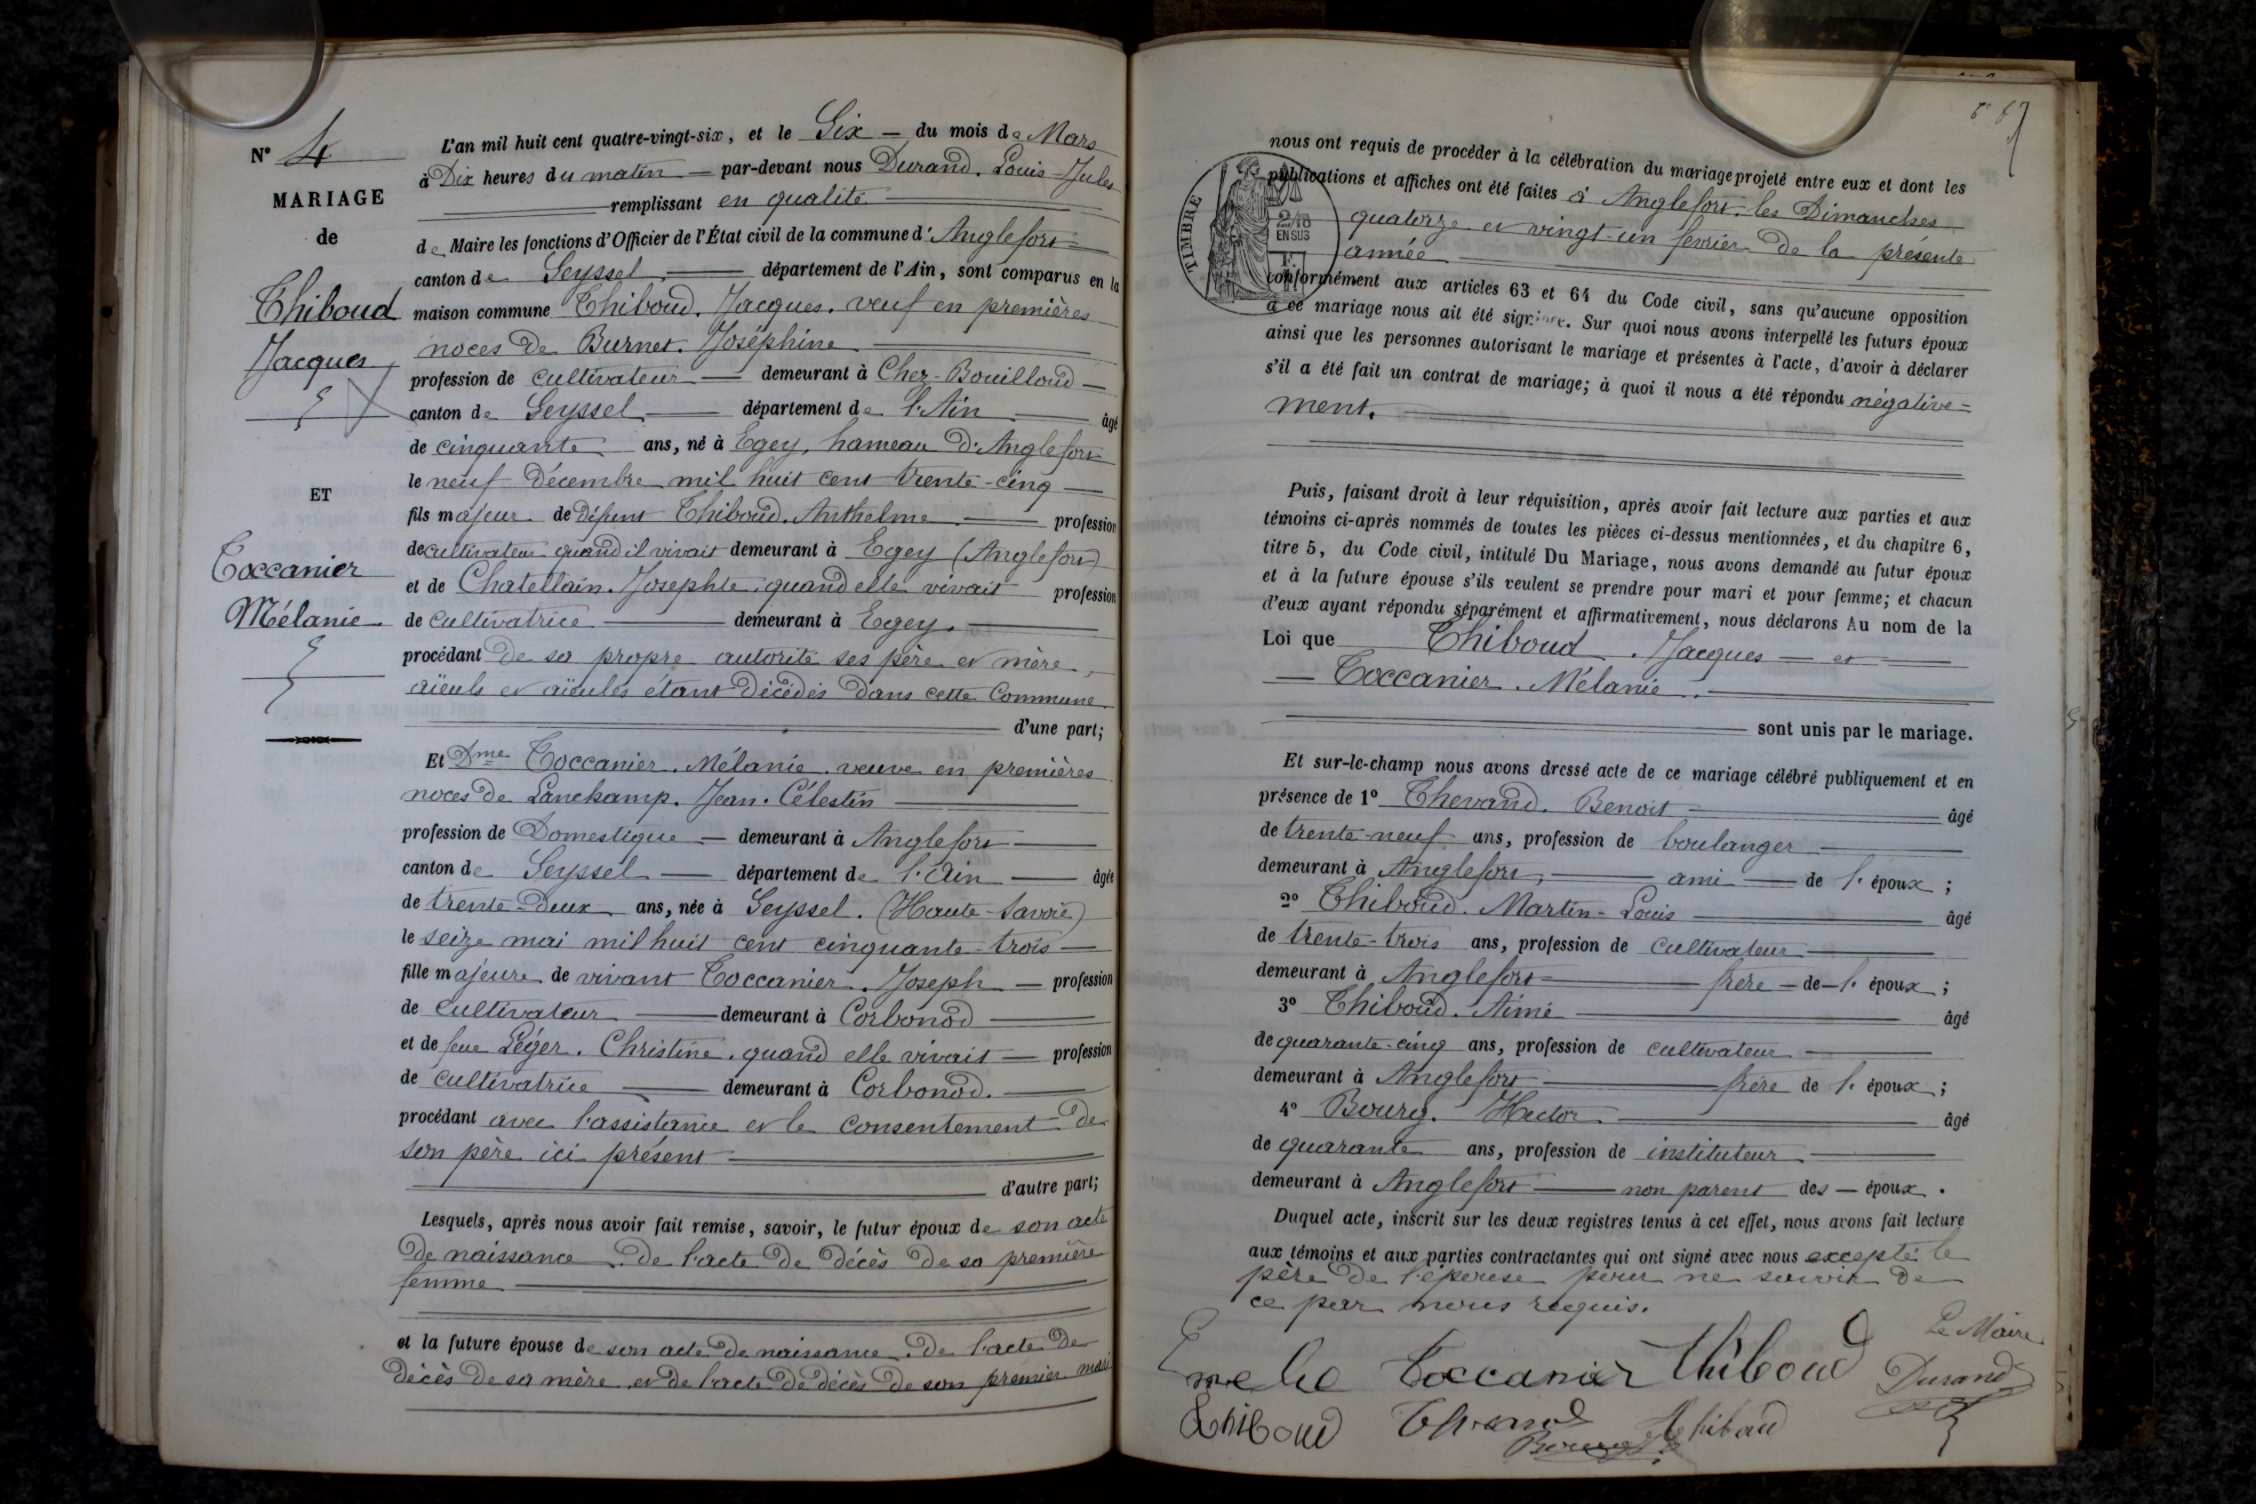 N° 4
MARIAGE
de
Thiboud
Jacques
ET
Toccanier
Mélanie
L'an mil huit cent quatre-vingt-six, et le Six du mois de Mars
à Dix heures du matin par-devant nous Durand. Louis-Jules
remplissant en qualité
de Maire les fonctions d'Officier de l'État civil de la commune d'Anglefort
canton de Seyssel, département de l'Ain, sont comparus en la
maison commune Thiboud. Jacques. veuf en premières
noces de Burnet. Joséphine
profession de cultivateur demeurant à Chez-Bouilloud
canton de Seyssel département de l'Ain âgé
de cinquante ans, né à Egey, hameau d'Anglefort
le neuf Décembre mil huit cent trente-cinq
fils majeur de défunt Thiboud. Anthelme profession
de cultivateur quand il vivait demeurant à Egey (Anglefort)
et de Chatellain. Josephte. quand elle vivait profession
de cultivatrice demeurant à Egey.
procédant de sa propre autorité ses père et mère,
aïeuls et aïeules étant décédés dans cette Commune
d'une part;
Et Dme Toccanier. Mélanie. veuve en premières
noces de Lanchamp. Jean. Célestin
profession de Domestique demeurant à Anglefort
canton de Seyssel département de l'Ain âgée
de trente-deux ans, née à Seyssel. (Haute-Savoie)
le seize mai mil huit cent cinquante-trois
fille majeure de vivant Toccanier. Joseph profession
de cultivateur demeurant à Corbonod
et de feue Léger. Christine. quand elle vivait profession
de cultivatrice demeurant à Corbonod.
procédant avec l'assistance et le consentement de
son père ici présent
d'autre part;
Lesquels, après nous avoir fait remise, savoir, le futur époux de son acte
de naissance. de l'acte de décès de sa première
femme
et la future épouse de son acte de naissance. de l'acte de
décès de sa mère et de l'acte de décès de son premier mari
TIMBRE
2/10
EN SUS
nous ont requis de procéder à la célébration du mariage projeté entre eux et dont les
publications et affiches ont été faites à Anglefort. les Dimanches
quatorze et vingt-un fevrier de la présente
année
conformément aux articles 63 et 64 du Code civil, sans qu'aucune opposition
à ce mariage nous ait été signifiée. Sur quoi nous avons interpellé les futurs époux
ainsi que les personnes autorisant le mariage et présentes à l'acte, d'avoir à déclarer
s'il a été fait un contrat de mariage; à quoi il nous a été répondu négative=
ment.
Puis, faisant droit à leur réquisition, après avoir fait lecture aux parties et aux
témoins ci-après nommés de toutes les pièces ci-dessus mentionnées, et du chapitre 6,
titre 5, du Code civil, intitulé Du Mariage, nous avons demandé au futur époux
et à la future épouse s'ils veulent se prendre pour mari et pour femme; et chacun
d'eux ayant répondu séparément et affirmativement, nous déclarons Au nom de la
Loi que Thiboud. Jacques et
Toccanier. Mélanie.
sont unis par le mariage.
Et sur-le-champ nous avons dressé acte de ce mariage célébré publiquement et en
présence de 1° Thevand. Benoit âgé
de trente-neuf ans, profession de boulanger
demeurant à Anglefort, ami de l'époux;
2° Thiboud. Martin-Louis âgé
de trente-trois ans, profession de cultivateur
demeurant à Anglefort frère de l'époux;
3° Thiboud. Aimé âgé
de quarante-cinq ans, profession de cultivateur
demeurant à Anglefort frère de l'époux;
4° Bourg. Hector âgé
de quarante ans, profession de instituteur
demeurant à Anglefort non parent des époux.
Duquel acte, inscrit sur les deux registres tenus à cet effet, nous avons fait lecture
aux témoins et aux parties contractantes qui ont signé avec nous excepté le
père de l'épouse pour ne savoir de
ce par nous requis.
Le Maire
Toccanier Thiboud Durand
Thiboud Bourg Thiboud